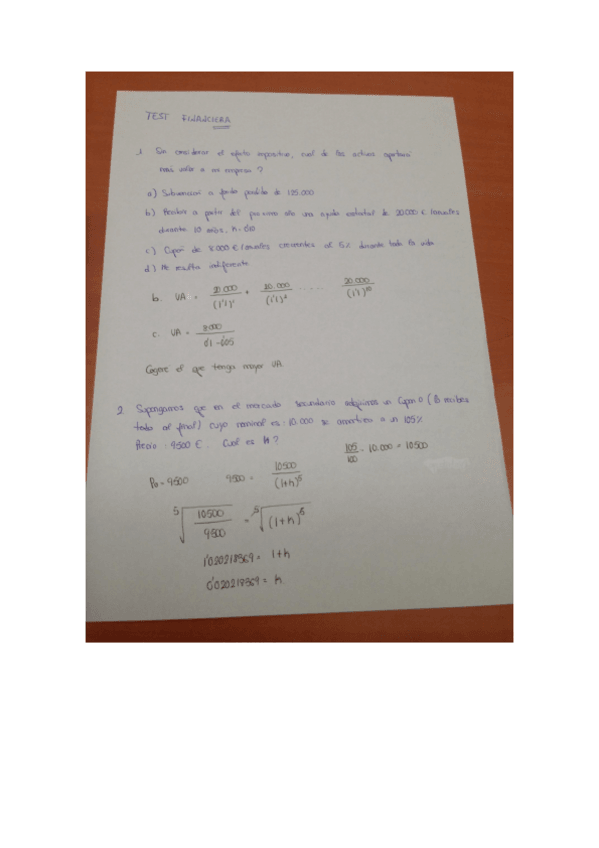 TEST FINANCIERA
1 Sin considerar el efecto impositivo, cual de los activos aportara
más valor a una empresa?
a) Subvencion a fondo perdido de 125.000
b) Recibir a partir del proximo año una ayuda estatal de 20.000 € anuales
durante 10 años, k=0'10
c) Cupon de 8.000 € anuales crecientes al 5% durante toda la vida
d) No resulta indiferente.
b. VA = 20.000 / (1'1)¹ + 20.000 / (1'1)² ..... 20.000 / (1'1)¹⁰
c. VA = 8000 / 0'1 - 0'05
Cogere el que tenga mayor VA.
2 Supongamos que en el mercado secundario adquirimos un Cupon 0 (lo recibes
todo al final) cuyo nominal es: 10.000 se amortiza a un 105%
Precio: 9500 €. Cual es k?
105/100 · 10.000 = 10500
P₀ = 9500 9500 = 10500 / (1+k)⁵
⁵√(10500 / 9500) = ⁵√(1+k)⁵
1'020217369 = 1+k
0'020217369 = k